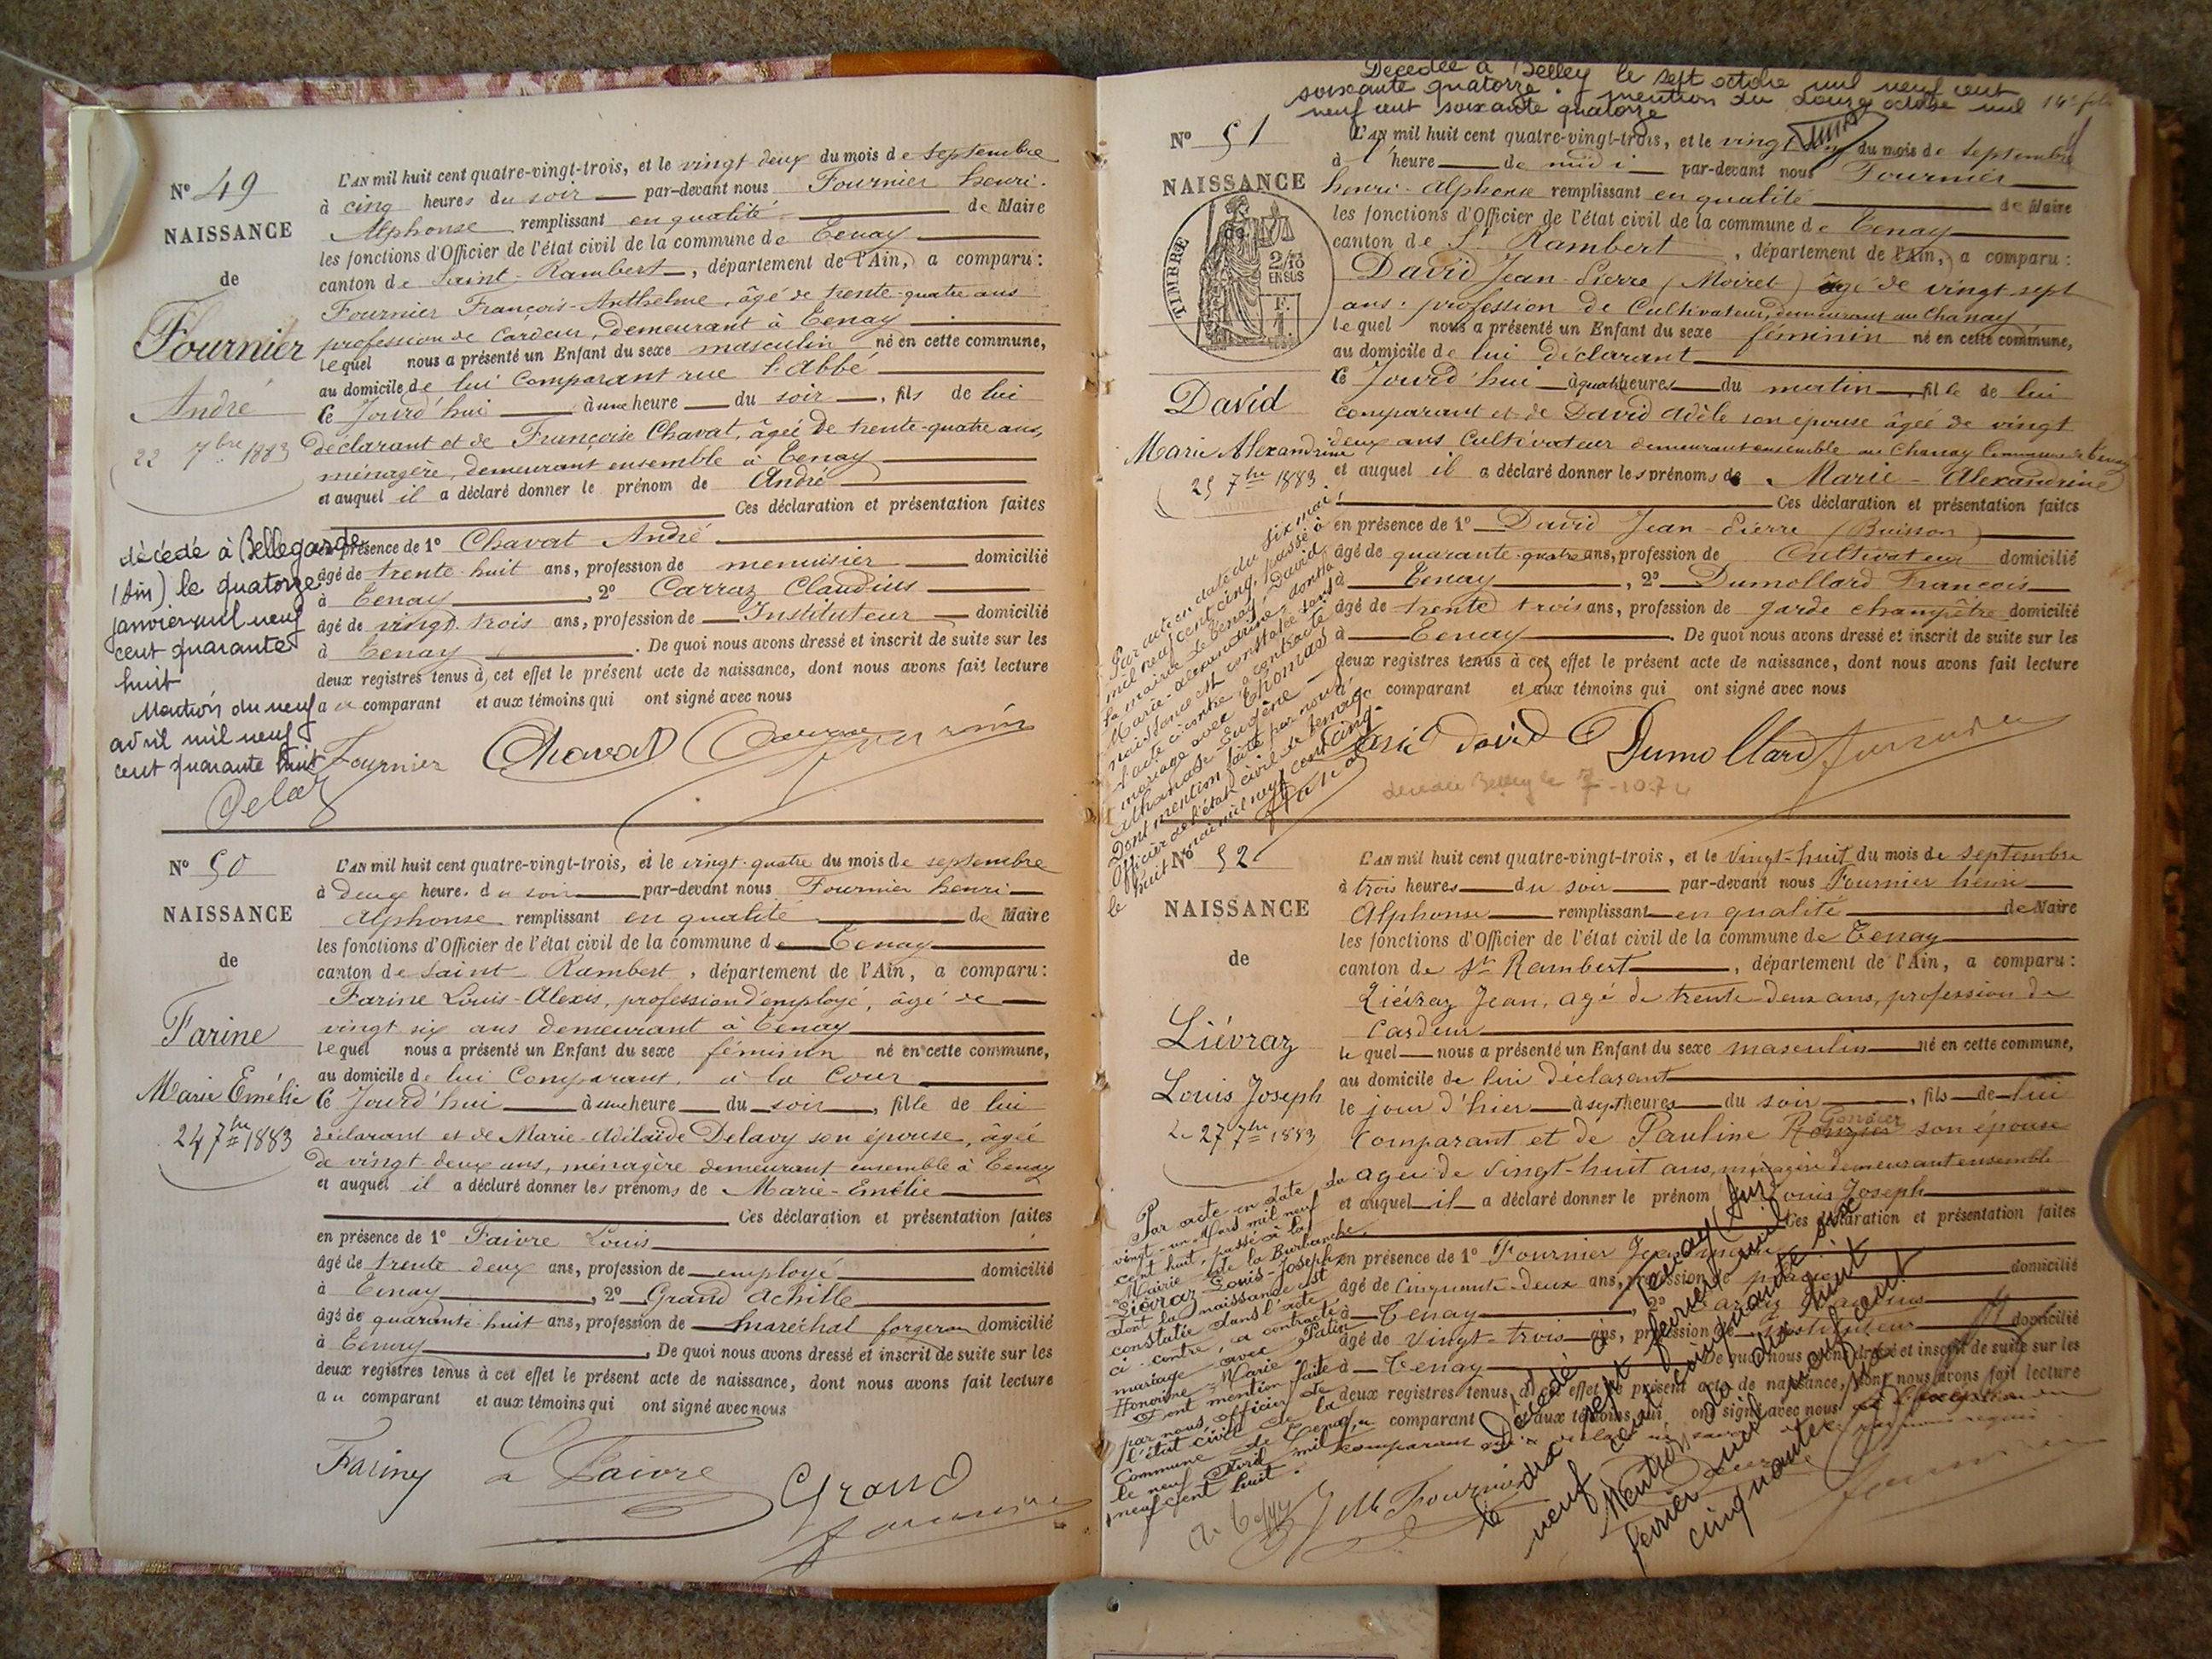 N° 49
NAISSANCE
de
Fournier
André
22 7bre 1883
L'AN mil huit cent quatre-vingt-trois, et le vingt deux du mois de septembre
à cinq heures du soir par-devant nous Fournier henri-
Alphonse remplissant en qualité de Maire
les fonctions d'Officier de l'état civil de la commune de Tenay
canton de Saint-Rambert, département de l'Ain, a comparu:
Fournier François-Anthelme, âgé de trente-quatre ans
profession de Cardeur, demeurant à Tenay
lequel nous a présenté un Enfant du sexe masculin né en cette commune,
au domicile de lui Comparant rue l'Abbé
ce Jourd'hui à une heure du soir, fils de lui
déclarant et de Françoise Chavat, âgée de trente-quatre ans,
ménagère, demeurant ensemble à Tenay
et auquel il a déclaré donner le prénom de André
Ces déclaration et présentation faites
en présence de 1° Chavat André
âgé de trente-huit ans, profession de menuisier domicilié
à Tenay, 2° Carraz Claudius
âgé de vingt trois ans, profession de Instituteur domicilié
à Tenay. De quoi nous avons dressé et inscrit de suite sur les
deux registres tenus à cet effet le présent acte de naissance, dont nous avons fait lecture
au comparant et aux témoins qui ont signé avec nous
Fournier Chavat
décédé à Bellegarde
(Ain) le quatorze
janvier mil neuf
cent quarante
huit
Mention du neuf
avril mil neuf
cent quarante huit
N° 50
NAISSANCE
de
Farine
Marie Emélie
24 7bre 1883
L'AN mil huit cent quatre-vingt-trois, et le vingt-quatre du mois de septembre
à deux heures du soir par-devant nous Fournier henri-
Alphonse remplissant en qualité de Maire
les fonctions d'Officier de l'état civil de la commune de Tenay
canton de Saint Rambert, département de l'Ain, a comparu:
Farine Louis-Alexis, profession d'employé, âgé de
vingt six ans demeurant à Tenay
lequel nous a présenté un Enfant du sexe féminin né en cette commune,
au domicile de lui Comparant, à la Cour
ce Jourd'hui à une heure du soir, fille de lui
déclarant et de Marie-Adélaïde Delavy son épouse, âgée
de vingt-deux ans, ménagère demeurant ensemble à Tenay
et auquel il a déclaré donner les prénoms de Marie-Emélie
Ces déclaration et présentation faites
en présence de 1° Faivre Louis
âgé de trente-deux ans, profession de employé domicilié
à Tenay, 2° Grand Achille
âgé de quarante-huit ans, profession de maréchal forgeron domicilié
à Tenay. De quoi nous avons dressé et inscrit de suite sur les
deux registres tenus à cet effet le présent acte de naissance, dont nous avons fait lecture
au comparant et aux témoins qui ont signé avec nous
Farine L Faivre Grand
Décédée à Belley le sept octobre mil neuf cent
soixante quatorze. mention du douze octobre mil
neuf cent soixante quatorze
N° 51
NAISSANCE
de
TIMBRE
2/10
EN SUS
David
Marie Alexandrine
25 7bre 1883
L'AN mil huit cent quatre-vingt-trois, et le vingt du mois de septembre
à l'heure de midi par-devant nous Fournier
henri-Alphonse remplissant en qualité de Maire
les fonctions d'Officier de l'état civil de la commune de Tenay
canton de St Rambert, département de l'Ain, a comparu:
David Jean-Pierre (Moiret) âgé de vingt sept
ans, profession de Cultivateur, demeurant au Chanay
lequel nous a présenté un Enfant du sexe féminin né en cette commune,
au domicile de lui déclarant
ce Jourd'hui à quatre heures du matin, fille de lui
comparant et de David Adèle son épouse âgée de vingt
deux ans Cultivateur demeurant ensemble au Chanay Commune de Tenay
et auquel il a déclaré donner les prénoms de Marie-Alexandrine
Ces déclaration et présentation faites
en présence de 1° David Jean-Pierre (Buisson)
âgé de quarante-quatre ans, profession de Cultivateur domicilié
à Tenay, 2° Dumollard François
âgé de trente trois ans, profession de garde champêtre domicilié
à Tenay. De quoi nous avons dressé et inscrit de suite sur les
deux registres tenus à cet effet le présent acte de naissance, dont nous avons fait lecture
comparant et aux témoins qui ont signé avec nous
David Dumollard
Par acte en date du six mai
mil neuf cent cinq, passé à
la mairie de Tenay, David
Marie-Alexandrine, dont la
naissance est constatée dans
l'acte ci-contre a contracté
mariage avec Thomas
Athanase-Eugène.
Dont mention faite par nous
Officier de l'état civil de Tenay
le huit mai mil neuf cent cinq.
N° 52
NAISSANCE
de
Liévraz
Louis Joseph
Le 27 7bre 1883
L'AN mil huit cent quatre-vingt-trois, et le vingt-huit du mois de septembre
à trois heures du soir par-devant nous Fournier henri
Alphonse remplissant en qualité de Maire
les fonctions d'Officier de l'état civil de la commune de Tenay
canton de St Rambert, département de l'Ain, a comparu:
Liévraz Jean, agé de trente-deux ans, profession de
Cardeur
lequel nous a présenté un Enfant du sexe masculin né en cette commune,
au domicile de lui déclarant
le jour d'hier à sept heures du soir, fils de lui
comparant et de Pauline son épouse
agée de vingt-huit ans, ménagère demeurant ensemble
et auquel il a déclaré donner le prénom Louis Joseph
Ces déclaration et présentation faites
en présence de 1° Fournier Jean
âgé de Cinquante-deux ans, profession de domicilié
à Tenay, 2°
âgé de vingt-trois ans, profession de instituteur domicilié
à Tenay De quoi nous avons dressé et inscrit de suite sur les
deux registres tenus à cet effet le présent acte de naissance, dont nous avons fait lecture
au comparant et aux témoins qui ont signé avec nous
Par acte en date du
vingt-un Mars mil neuf
cent huit passé à la
Mairie de la Burbanche,
Liévraz Louis-Joseph
dont la naissance est
constatée dans l'acte
ci-contre, a contracté
mariage avec Patin
Honorine-Marie
Dont mention faite
par nous, officier de
l'état civil de la
Commune de Tenay,
le neuf Avril mil
neuf cent huit.
Décédé à Tenay (Ain)
le dix sept février mil
neuf cent cinquante six
Mention du dix huit
février mil neuf cent
cinquante six
JM Fournier